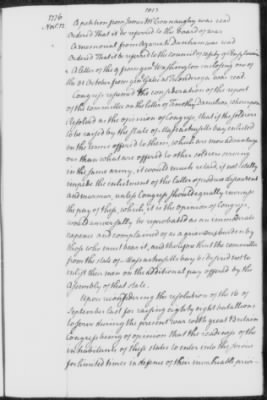 1776
Nov. 12.
A petition from James McConnaughy was read
Ordered That it be referred to the board of war
A memorial from Azariah Dunham was read
Ordered That it be referred to the council of safety of New Jersey
A letter of the 9 from genl Washington inclosing one of
the 31 October from genl Gates at Ticonderoga was read.
Congress resumed the consideration of the report
of the committee on the letter of Timothy Danielson whereupon
Resolved as the opinion of Congress, that if the soldiers
to be raised by the state of Massachusetts bay be enlisted
on the terms offered to them, which are more advantage
ous than what are offered to other soldiers serving
in the same army, it would much retard, if not totally
impede the enlistment of the latter
and manner, unless Congress should equally increase
the pay of these, which, it is the opinion of Congress,
would universally be reprobated as an immoderate
expence and complained of as a grievous burden by
those who must bear it, and therefore that the committee
from the state of Massachusetts bay be desired not to
enlist their men on the additional pay offered by the
Assembly of that state.
Upon reconsidering the resolution of the 16 of
September last for raising eighty eight battalions
to serve during the present war with great Britain
Congress being of opinion that the readiness of the
inhabitants of these states to enter into the service
for limited times in defence of their invaluable privi-